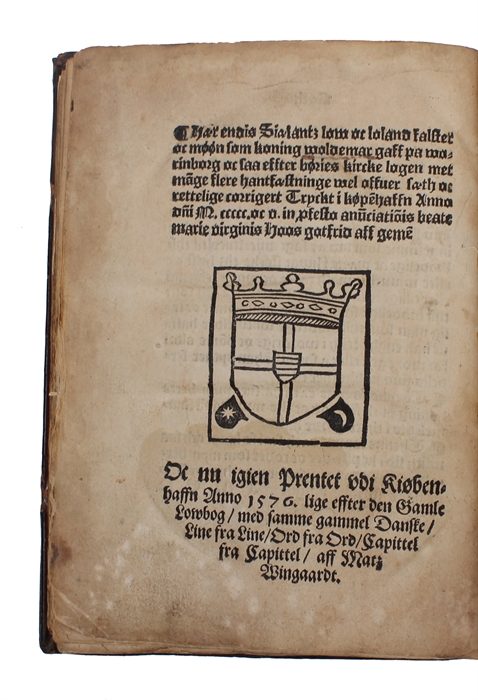 ¶ Har endis Sialantz low oc loland falster
oc møøn som koning woldemar gaff pa wo-
rinborg oc saa effter børies kircke logen met
mãge flere hantfæstninge wel offuer sæth oc
rettelige corrigert Trpckt i køpẽhaffn Anno
dñi M. ccccc. oc v. in pfesto anũciatiõis beate
marie virginis Hoos gotfrid aff gemẽ
Oc nu igien Prentet vdi Kiøben-
haffn Anno 1576. lige effter den Gamle
Lowbog / med samme gammel Danske /
Line fra Line / Ord fra Ord / Capittel
fra Capittel / aff Matz
Wingaardt.